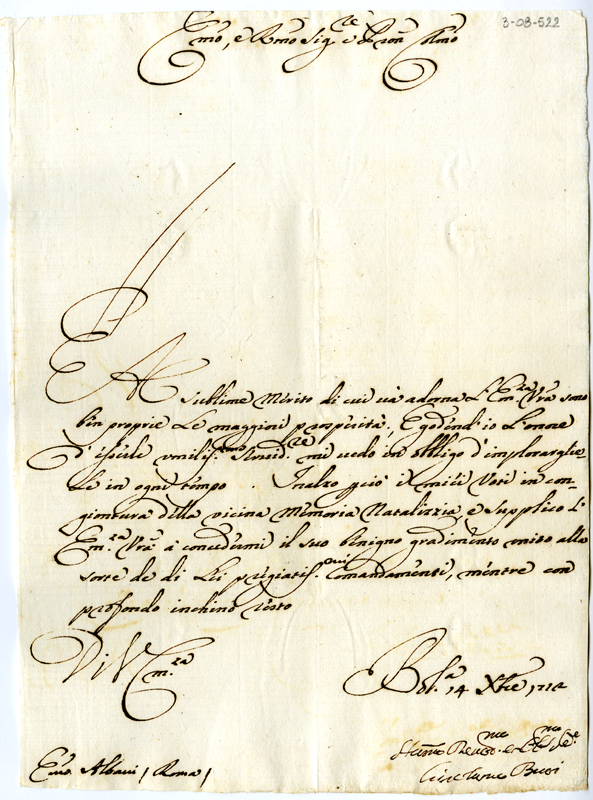 3-03-522
Emo, e Rmo Sig.re e Pron Colmo
Al sublime Merito di cui và adorna l'Em.za Vra sono
ben proprie le maggiori prosperità, e godend'io l'onore
d'esserle umilis.mo Servid.re mi vedo in obbligo d'implorarglie-
le in ogni tempo. Inalzo perciò i miei Voti in con-
giontura della vicina Memoria Natalizzia, e supplico l'
Em.za Vra à concedermi il suo benigno gradimento unito alla
sorte de di Lei pregiatis.mi Comandamenti, mentre con
profondo inchino resto
Di V. Em.za
Bol.a 14 Xbre
Emo Albani / Roma /